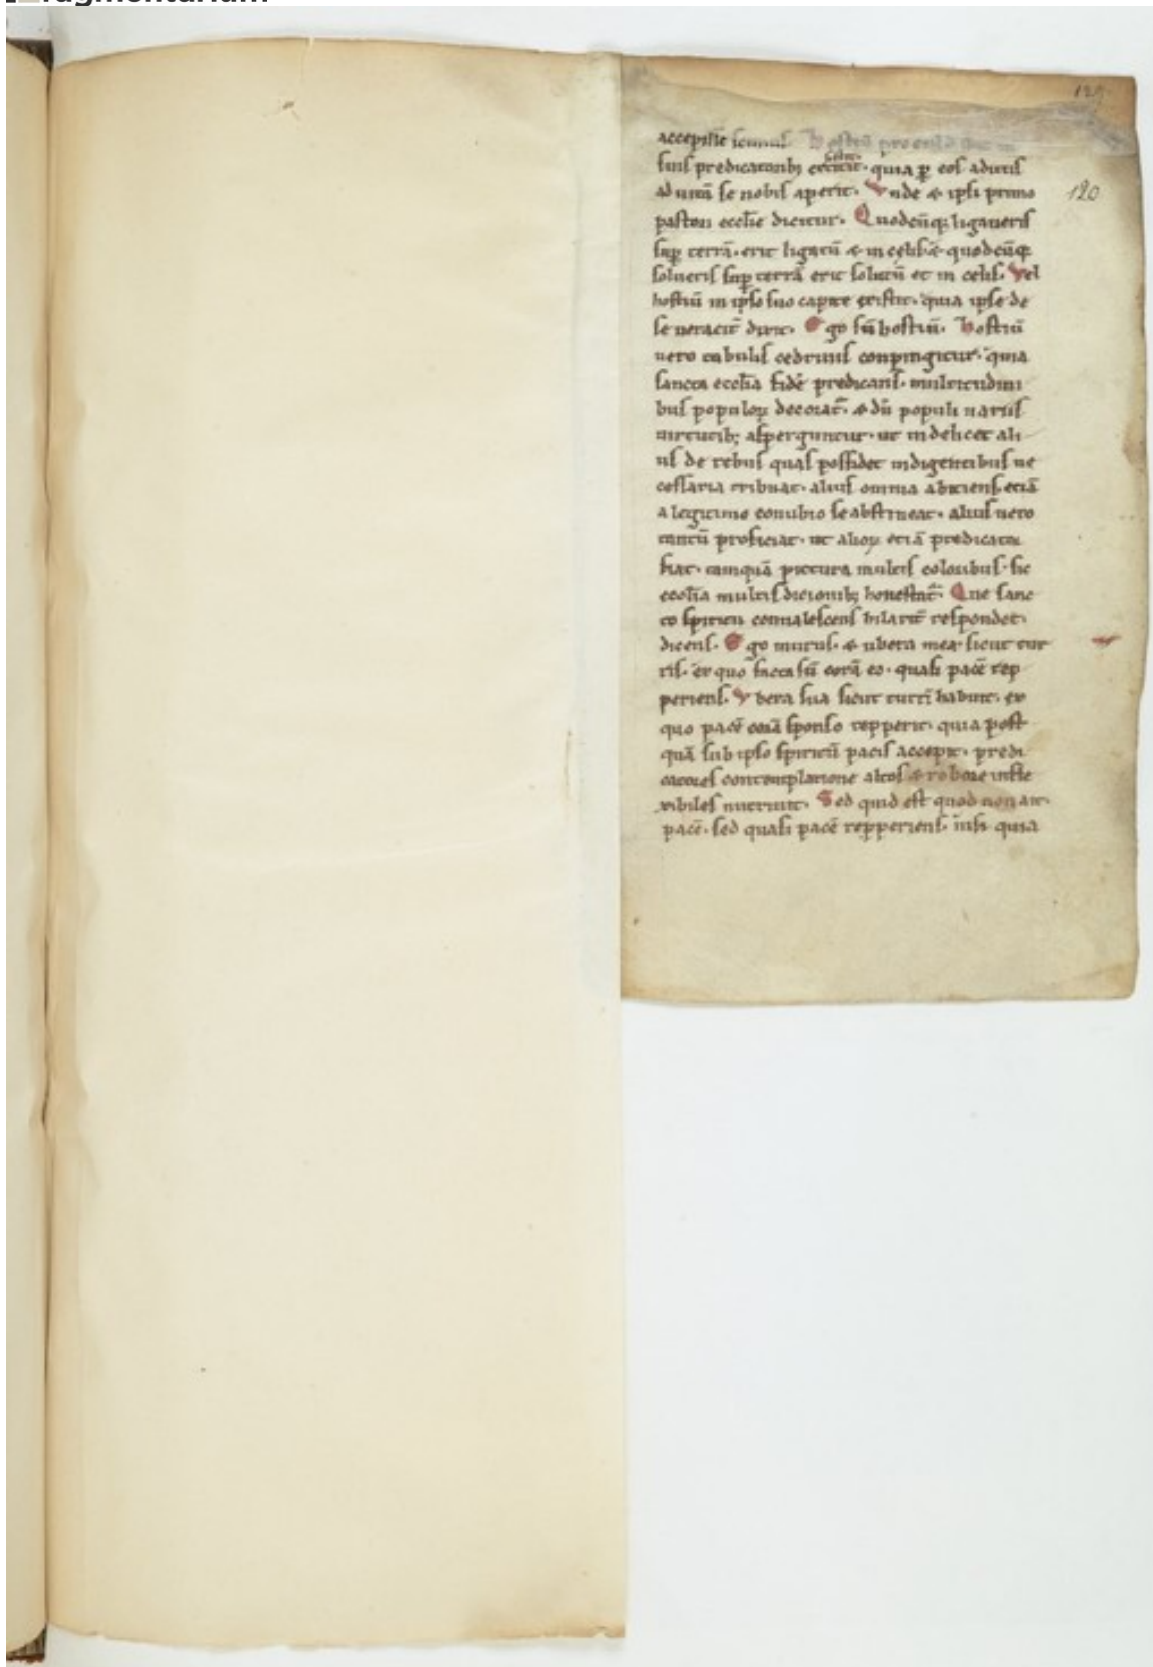 129
accepisse scimus. Hostiũ pro
suis predicatorib; existit. quia ꝑ eos aditus
ad uitã se nobis aperit. Vnde & ipsi primo
120
pastori ecclie dicitur. Quodcũq; ligaueris
suꝑ terrã. erit ligatũ & in celis. & quodcũq;
solueris suꝑ terrã erit solutũ et in celis. Vel
hostiũ in ipso suo capite existit. quia ipse de
se ueracit̃ dixit. Ego sũ hostiũ. Hostiũ
uero tabulis cedrinis conpingitur. quia
sancta ecclia fidẽ predicans. multitudini
bus populoꝝ decorat̃. & dũ populi uariis
uirtutib; asperguntur. ut uidelicet ali
us de rebus quas possidet indigentibus ne
cessaria tribuat. alius omnia abiciens. etiã
a legitimo conubio se abstineat. alius uero
tantũ proficiat. ut alioꝝ etiã predicator
fiat. tamquã pictura multis coloribus. sic
ecclia multis dicionib; honestat̃. Que sanc
to spiritu conualescens hilarit̃ respondet.
dicens. Ego murus. & ubera mea sicut tur
ris. ex quo facta sũ corã eo. quasi pacẽ rep
periens. Vbera sua sicut turrĩ habuit. ex
quo pacẽ corã sponso repperit. quia post
quã sub ipso spiritũ pacis accepit. predi
catores contemplatione altos & robore infle
xibiles nutriuit. Sed quid est quod non ait.
pacẽ. sed quasi pacẽ repperiens. nisi quia